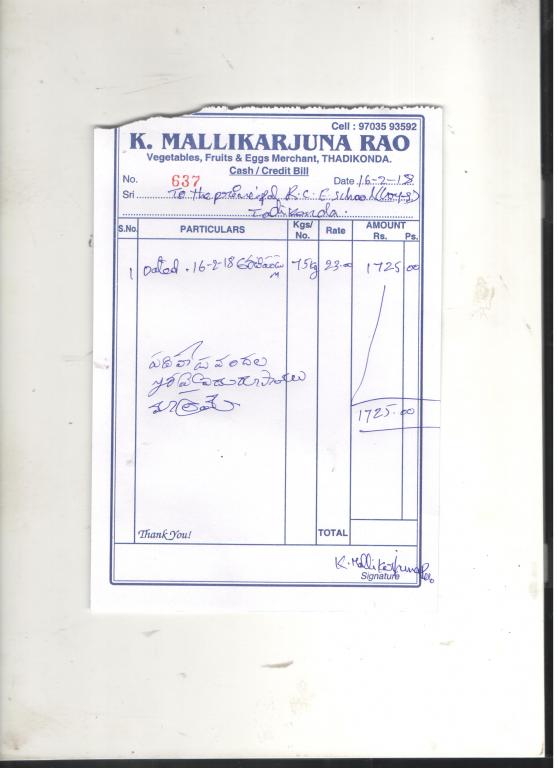 Cell : 97035 93592
K. MALLIKARJUNA RAO
Vegetables, Fruits & Eggs Merchant, THADIKONDA.
Cash / Credit Bill
No. 637 Date 16-2-18
Sri To the principal, R.C.E. school (Boys)
Tadikonda.
S.No. PARTICULARS Kgs/ No. Rate AMOUNT Rs. Ps.
1 Dated . 16-2-18 75kg 23-00 1725 00
పదిహేను వందల
మాత్రమే
1725.00
Thank You! TOTAL
K. Mallikarjuna Rao
Signature